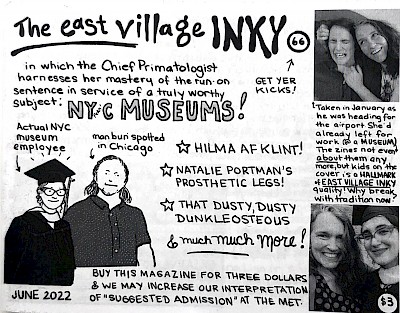 The east village INKY 66
in which the Chief Primatologist
harnesses her mastery of the run-on
sentence in service of a truly worthy
subject: NYC MUSEUMS!
GET YER
KICKS!
Actual NYC
museum
employee
man bun spotted
in Chicago
☆ HILMA AF KLINT!
☆ NATALIE PORTMAN'S
PROSTHETIC LEGS!
☆ THAT DUSTY, DUSTY
DUNKLEOSTEUS
& much much more!
BUY THIS MAGAZINE FOR THREE DOLLARS
& WE MAY INCREASE OUR INTERPRETATION
OF "SUGGESTED ADMISSION" AT THE MET.
JUNE 2022
Taken in January as
he was heading for
the airport She'd
already left for
work (@ a MUSEUM)
The zines not even
about them any
more, but kids on the
cover is a HALLMARK
of EAST VILLAGE INKY
quality! Why break
with tradition now?
$3